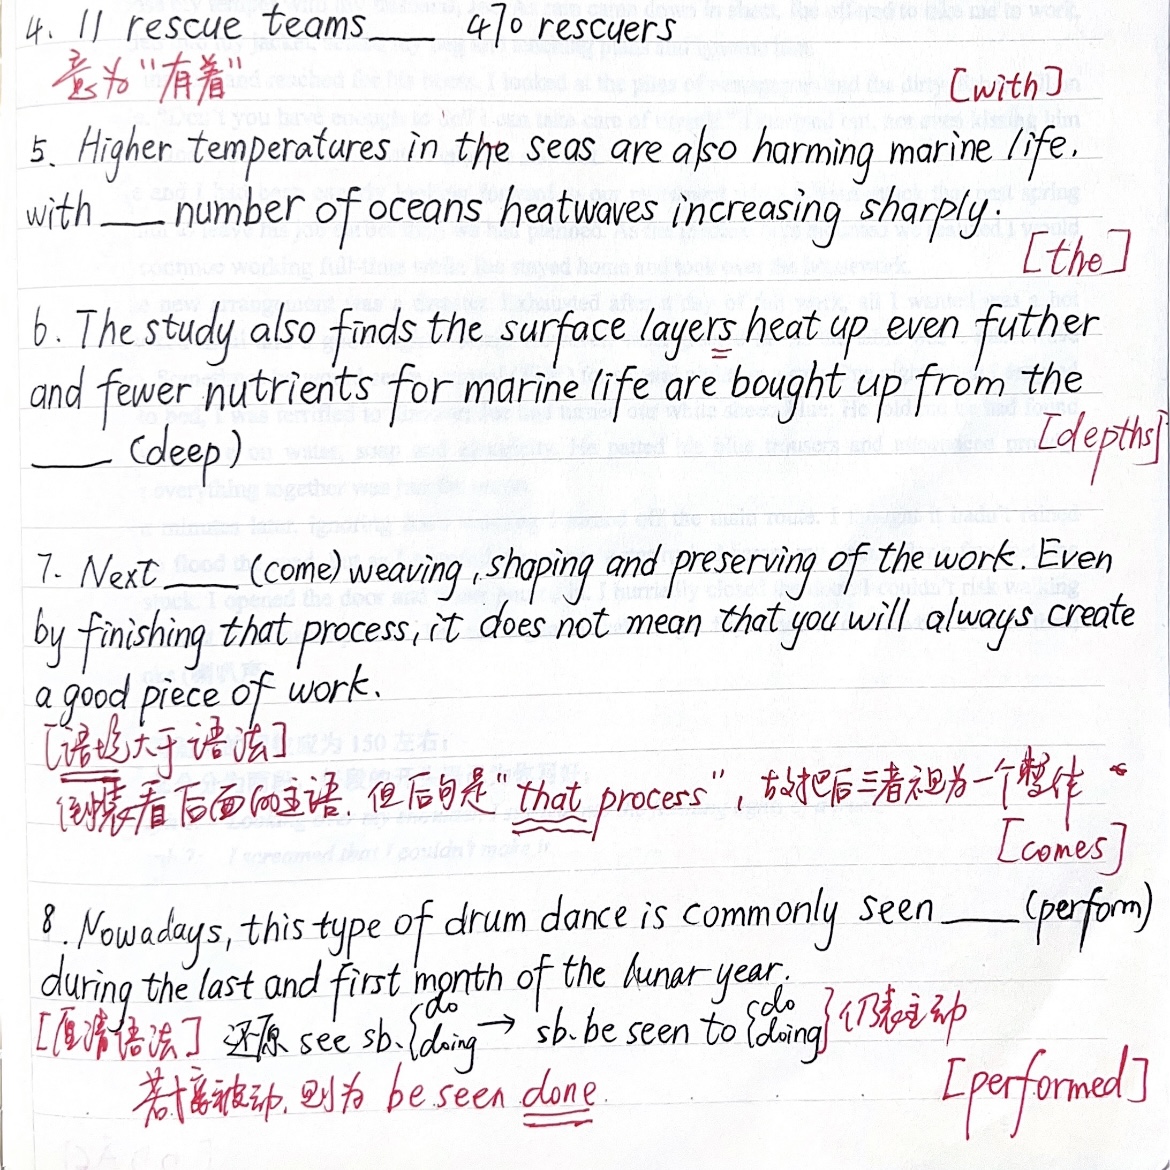 4. 11 rescue teams____ 470 rescuers
意为“有着” [with]
5. Higher temperatures in the seas are also harming marine life.
with ____ number of oceans heatwaves increasing sharply.
[the]
6. The study also finds the surface layers heat up even futher
and fewer nutrients for marine life are bought up from the
____ (deep) [depths]
7. Next ____ (come) weaving, shaping and preserving of the work. Even
by finishing that process, it does not mean that you will always create
a good piece of work.
[语境大于语法]
倒装看后面的主语. 但后句是“that process”, 故把后三者视为一个整体
[comes]
8. Nowadays, this type of drum dance is commonly seen ____ (perform)
during the last and first month of the lunar year.
[厘清语法] 还原 see sb. {do doing → sb. be seen to {do doing} 仍表主动
若接被动, 则为 be seen done. [performed]